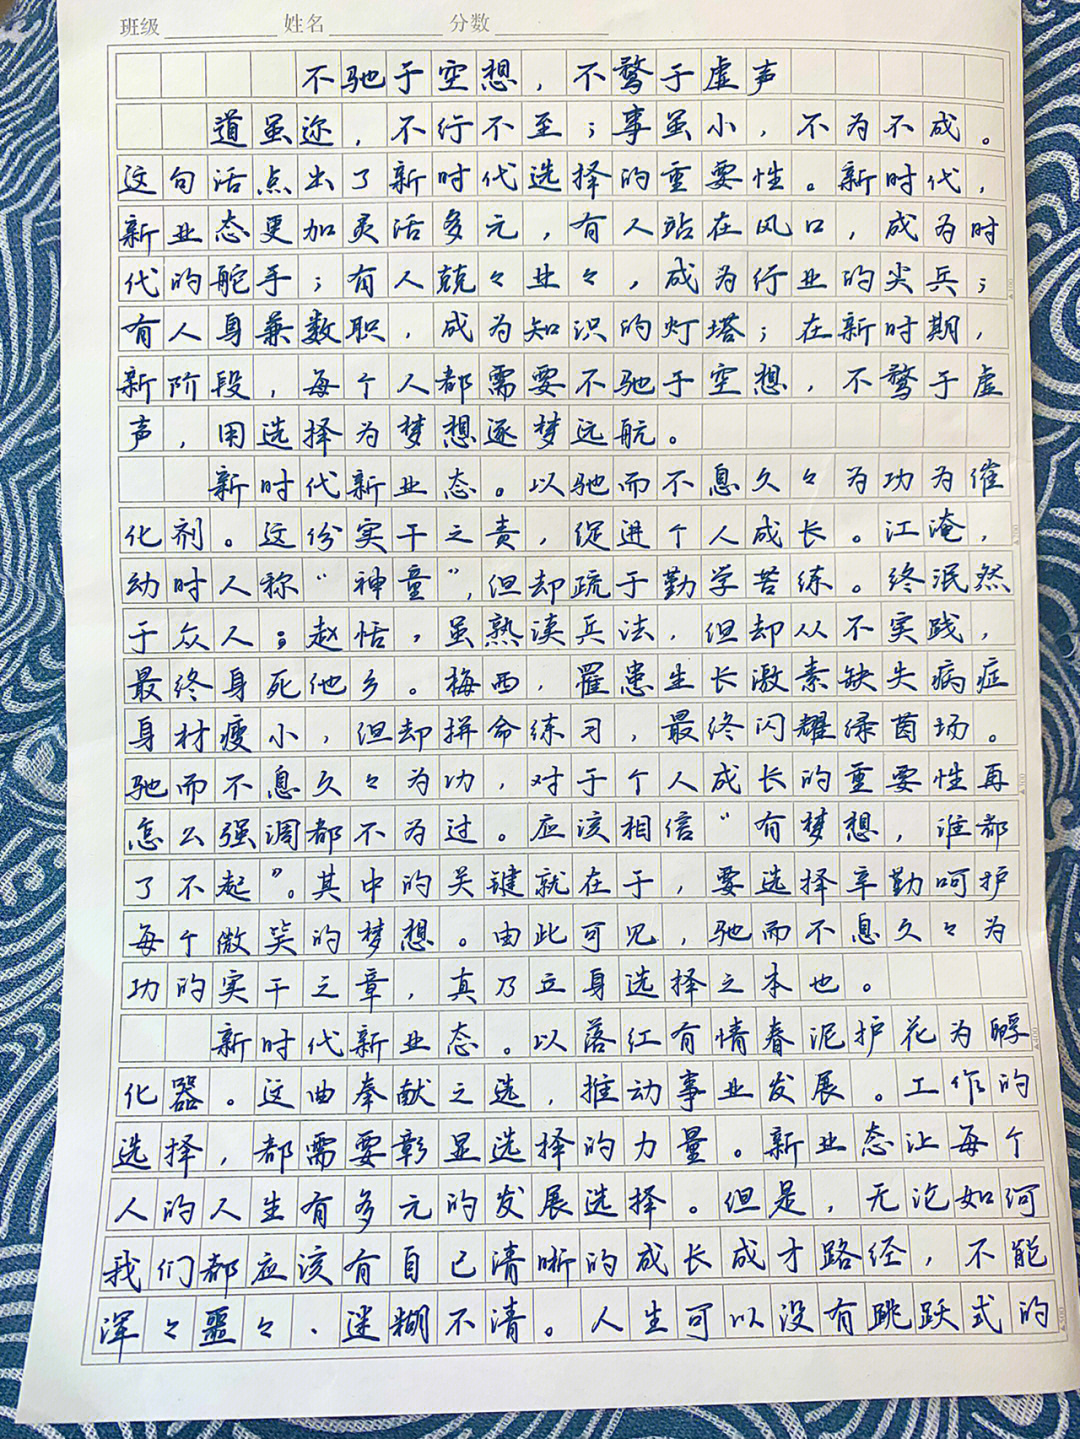 班级 姓名 分数
不驰于空想，不鹜于虚声
道虽迩，不行不至；事虽小，不为不成。
这句话点出了新时代选择的重要性。新时代，
新业态更加灵活多元，有人站在风口，成为时
代的舵手；有人兢々业々，成为行业的尖兵；
有人身兼数职，成为知识的灯塔；在新时期，
新阶段，每个人都需要不驰于空想，不鹜于虚
声，用选择为梦想逐梦远航。
新时代新业态。以驰而不息久々为功为催
化剂。这份实干之责，促进个人成长。江淹，
幼时人称“神童”，但却疏于勤学苦练。终泯然
于众人；赵恬，虽熟读兵法，但却从不实践，
最终身死他乡。梅西，罹患生长激素缺失病症
身材瘦小，但却拼命练习，最终闪耀绿茵场。
驰而不息久々为功，对于个人成长的重要性再
怎么强调都不为过。应该相信“有梦想，谁都
了不起”。其中的关键就在于，要选择辛勤呵护
每个微笑的梦想。由此可见，驰而不息久々为
功的实干之章，真乃立身选择之本也。
新时代新业态。以落红有情春泥护花为孵
化器。这曲奉献之选，推动事业发展。工作的
选择，都需要彰显选择的力量。新业态让每个
人的人生有多元的发展选择。但是，无论如何
我们都应该有自己清晰的成长成才路径，不能
浑々噩々、迷糊不清。人生可以没有跳跃式的
▲100
▲200
▲300
▲400
▲500